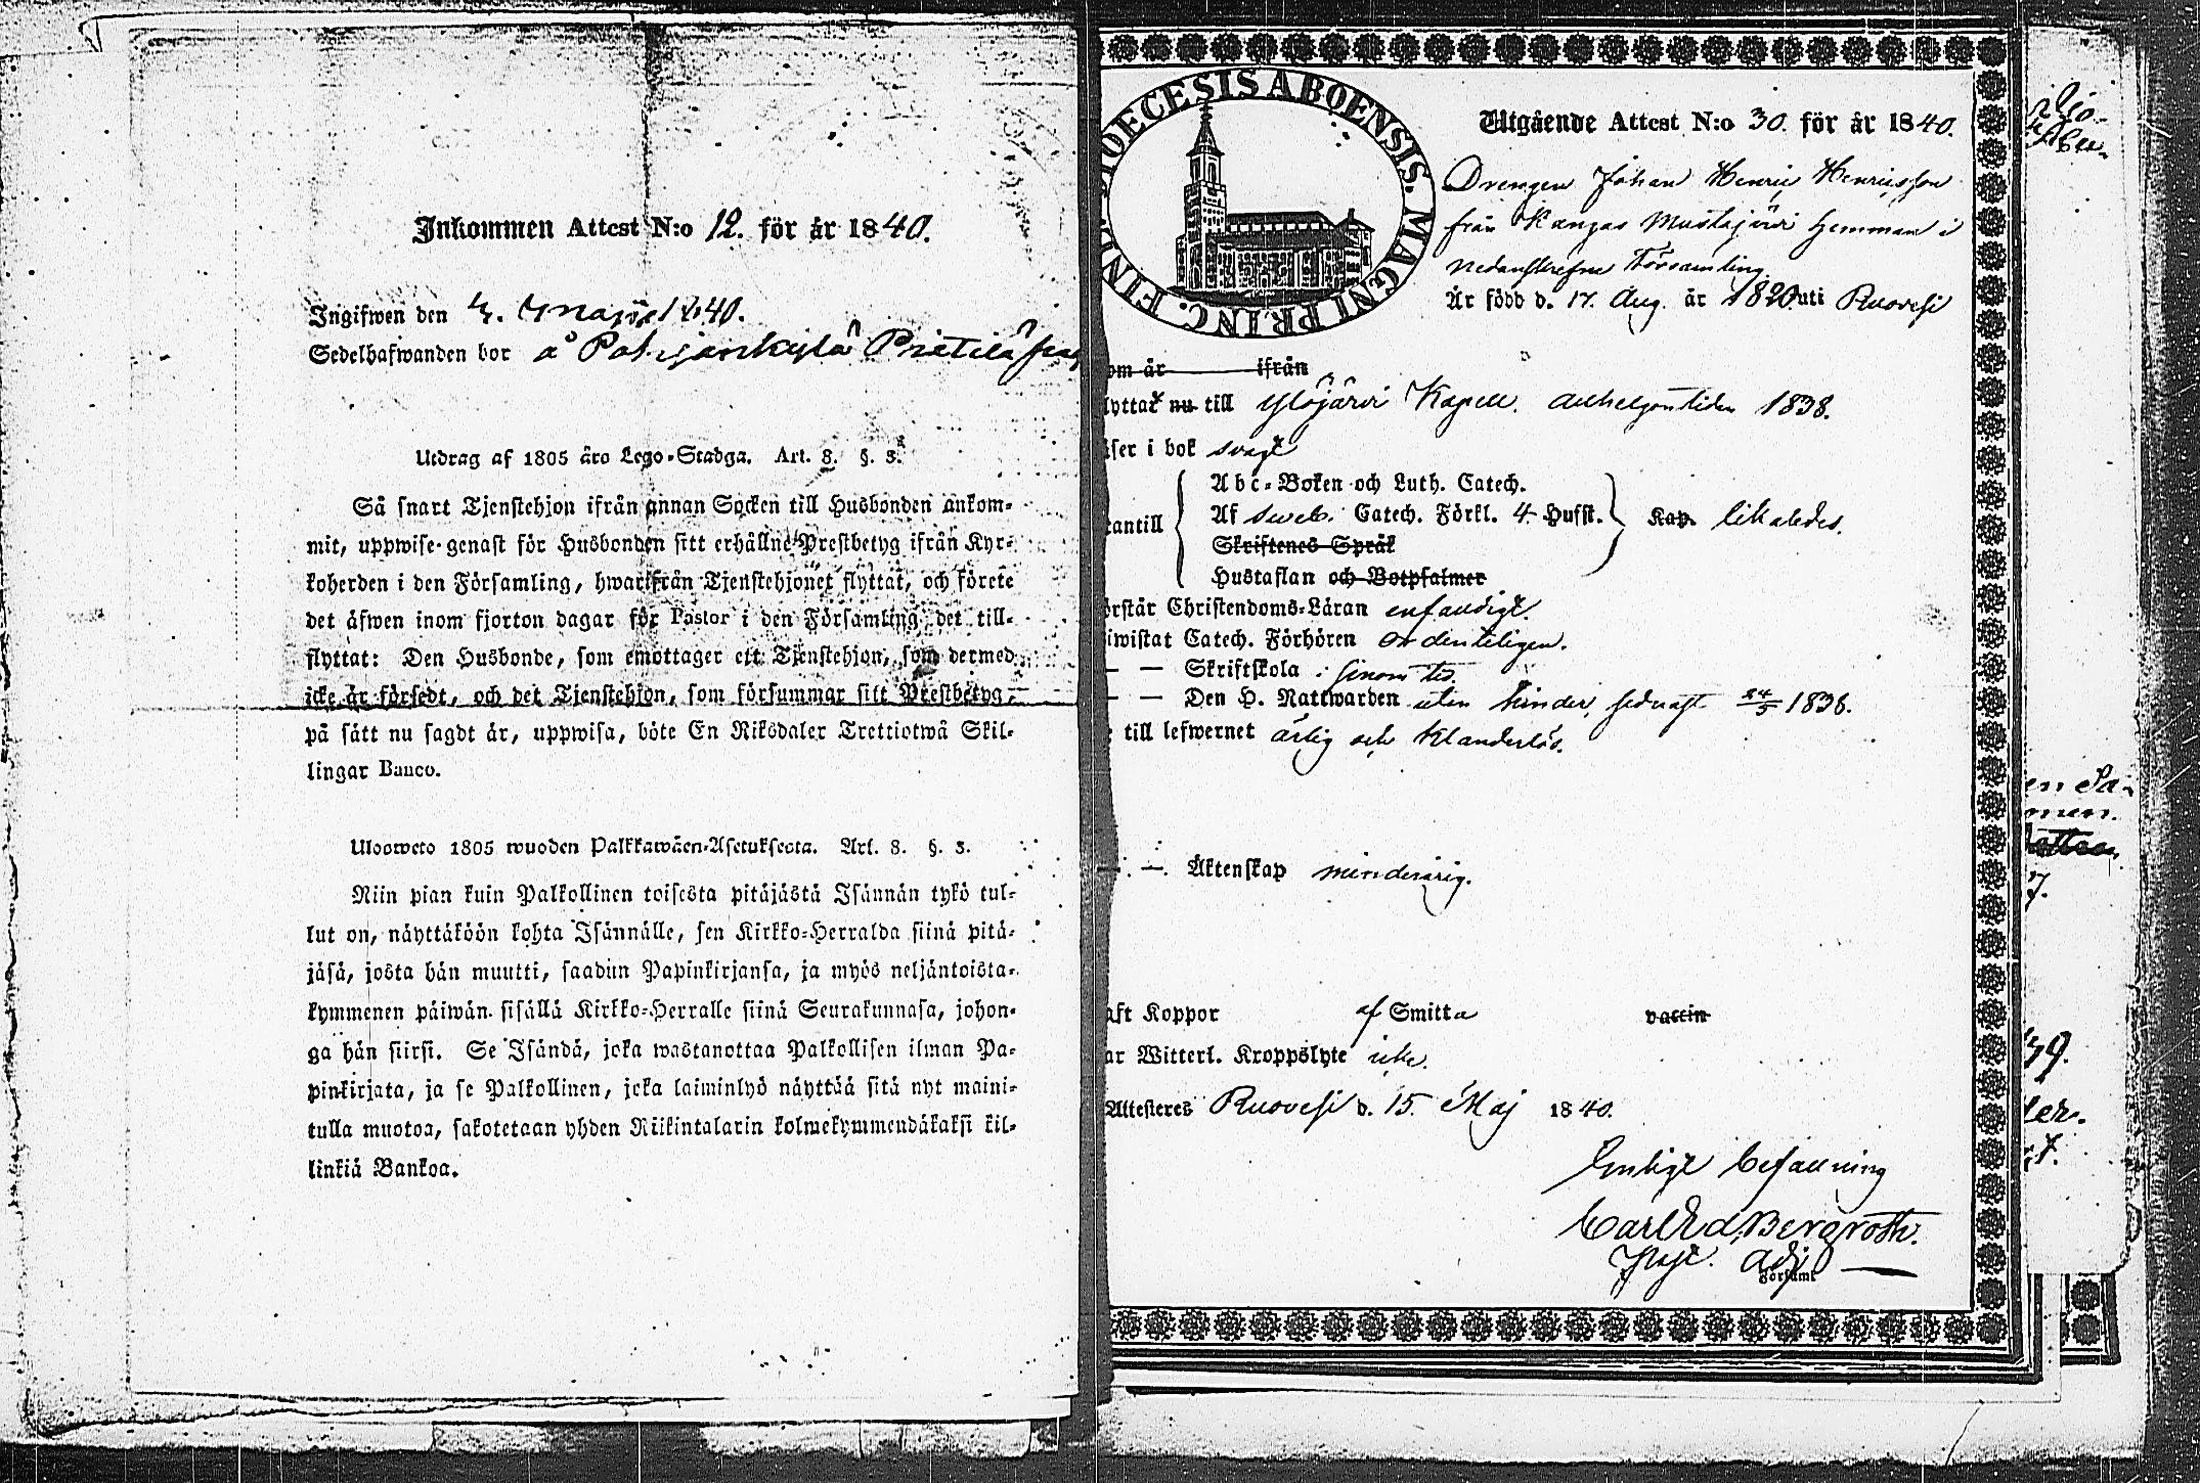 Inkommen Attest N:o 12. för år 1840.
Ingifwen den 1840.
Sedelhafwanden bor å Pohjankylä
Utdrag af 1805 års Lego-Stadga. Art. 8. §. 3.
Så snart Tjenstehjon ifrån annan Socken till Husbonden ankom-
mit, uppwise genast för Husbonden sitt erhållne Prestbetyg ifrån Kyr-
koherden i den Församling, hwarifrån Tjenstehjonet flyttat, och förete
det äfwen inom fjorton dagar för Pastor i den Församling det till-
flyttat: Den Husbonde, som emottager ett Tjenstehjon, som dermed
icke är försedt, och det Tjenstehjon, som försummar sitt Prestbetyg,
på sätt nu sagdt är, uppwisa, böte En Riksdaler Trettiotwå Skil-
lingar Banco.
Ulosweto 1805 wuoden Palkkawäen-Asetuksesta. Art. 8. §. 3.
Niin pian kuin Palkollinen toisesta pitäjästä Isännän tykö tul-
lut on, näyttäköön kohta Isännälle, sen Kirkko-Herralda siinä pitä-
jäsä, josta hän muutti, saadun Papinkirjansa, ja myös neljäntoista-
kymmenen päiwän sisällä Kirkko-Herralle siinä Seurakunnasa, johon-
ga hän siirsi. Se Isändä, joka wastanottaa Palkollisen ilman Pa-
pinkirjata, ja se Palkollinen, joka laiminlyö näyttää sitä nyt maini-
tulla muotoa, sakotetaan yhden Riikintalarin kolmekymmendäkaksi kil-
linkiä Bankoa.
DIOECESIS ABOENSIS. MAGNI PRINC. FINL.
Utgående Attest N:o 30. för år 1840.
Drengen Johan Henric Henricsson
från Kangas Mustajärvi hemman i
nedanskrefne Församling
Är född d. 17. Aug. år 1820 uti Ruovesi
om är ifrån
lyttat nu till Ylöjärvi Kapell. Allhelgontiden 1838.
äser i bok svagt
tantill
Abc-Boken och Luth. Catech.
Af Sveb. Catech. Förkl. 4. Hufst. Kap. likaledes.
Skriftenes Språk
Hustaflan och Botpsalmer
örstår Christendoms-Läran enfaldigt.
iwistat Catech. Förhören ordenteligen.
— — Skriftskola
— — Den H. Nattwarden utan hinder, sednast 24/5 1838.
: till lefwernet ärlig och klanderlös.
— . — . Äktenskap minderårig.
aft Koppor af Smitta vaccin
ar Witterl. Kroppslyte icke.
Attesteres Ruovesi d. 15. Maj 1840.
Enligt befallning
Carl Ed. Bergroth.
Past. Adj.
Församl